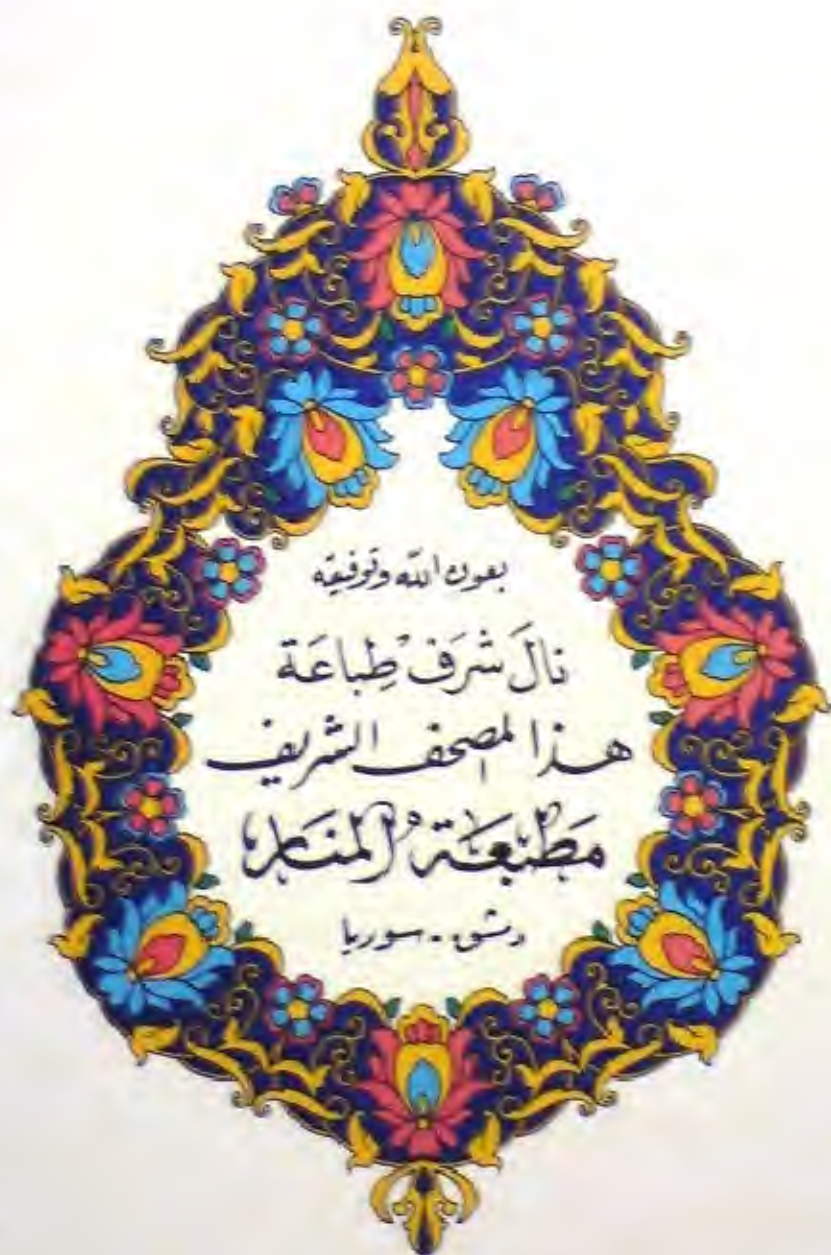 بعون الله وتوفيقه
نالَ شَرَف طِباعَة
هذا المصحف الشريف
مَطبَعَة المنَار
دمشق - سوريا